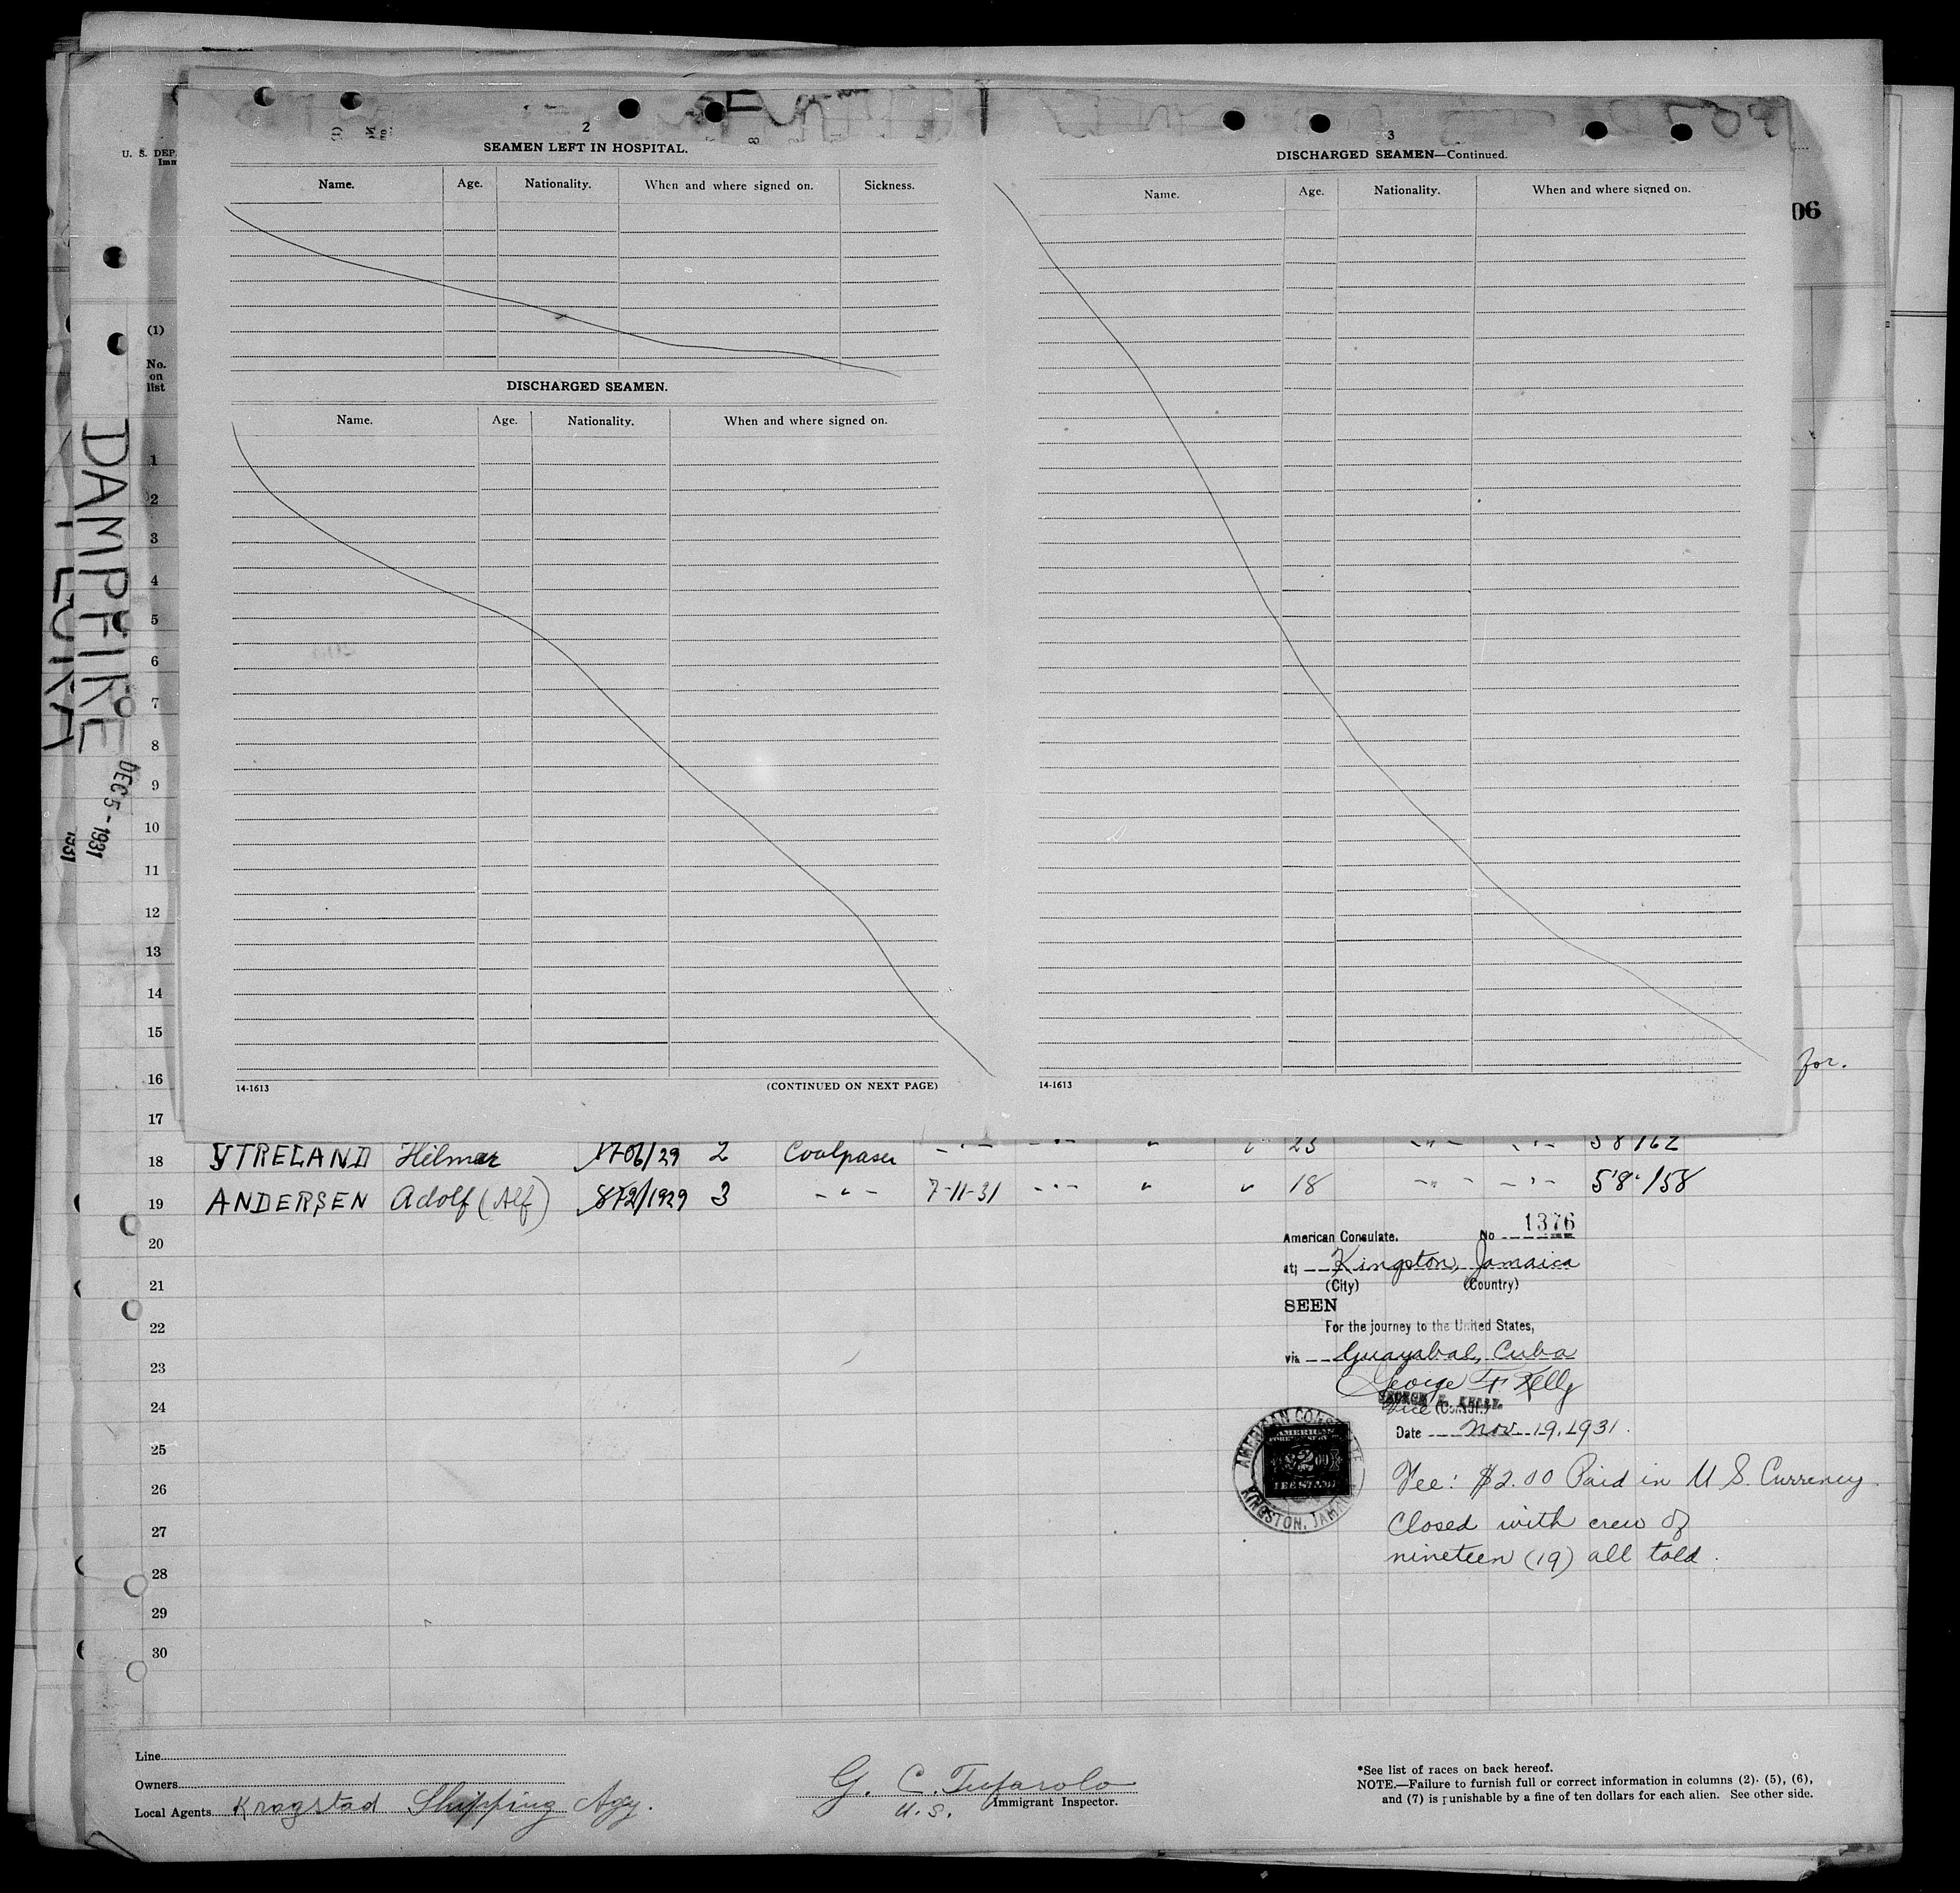 2
SEAMEN LEFT IN HOSPITAL.
Name. Age. Nationality. When and where signed on. Sickness.
DISCHARGED SEAMEN.
Name. Age. Nationality. When and where signed on.
14-1613 (CONTINUED ON NEXT PAGE)
3
DISCHARGED SEAMEN—Continued.
Name. Age. Nationality. When and where signed on.
14-1613
U. S. DEP
Imm
06
(1)
No.
on
list
DAMPFIRE
DEC 5-1931
1931
1
2
3
4
5
6
7
8
9
10
11
12
13
14
15
16
for.
17
18 YTRELAND Hilmar 1706/29 2 Coalpaser -"- -"- " " 23 -"- -"- 58 162
19 ANDERSEN Adolf (Alf) 872/1929 3 -"- 7-11-31 -"- " " 18 -"- -"- 5'8" 158
20
21
22
23
24
25
26
27
28
29
30
American Consulate. No 1376
at; Kingston, Jamaica
(City) (Country)
SEEN
For the journey to the United States,
via Guayabal, Cuba
George F. Kelly
GEORGE F. KELLY.
Vice Consul
Date Nov. 19, 1931.
AMERICAN CONSULATE
KINGSTON, JAMAICA
AMERICAN
Fee: $2.00 Paid in U S. Currency
Closed with crew of
nineteen (19) all told.
Line
Owners
Local Agents Kragstad Shipping Agy.
G. C. Tufarolo
U.S. Immigrant Inspector.
*See list of races on back hereof.
NOTE.—Failure to furnish full or correct information in columns (2), (5), (6),
and (7) is punishable by a fine of ten dollars for each alien. See other side.